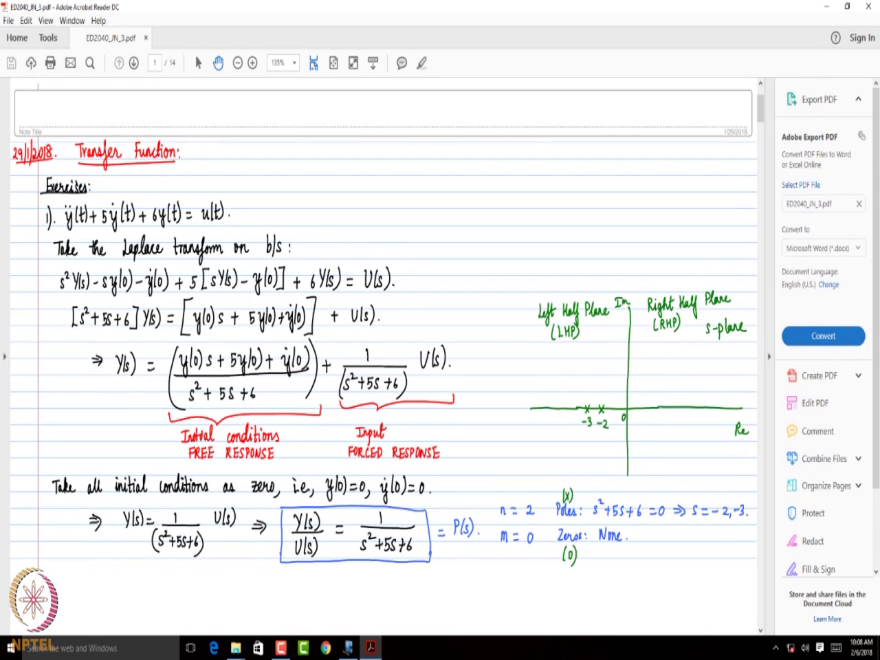 ED2040_JN_3.pdf - Adobe Acrobat Reader DC
File Edit View Window Help
Home Tools ED2040_JN_3.pdf × Sign In
1 / 14 135%
Note Title 1/29/2018
29/1/2018. Transfer Function:
Exercises:
1). ÿ(t) + 5ẏ(t) + 6y(t) = u(t).
Take the Laplace transform on b/s:
s²Y(s) - sy(0) - ẏ(0) + 5[sY(s) - y(0)] + 6Y(s) = U(s).
[s²+5s+6] Y(s) = [y(0)s + 5y(0) + ẏ(0)] + U(s).
⇒ Y(s) = (y(0)s + 5y(0) + ẏ(0) / s² + 5s + 6) + 1/(s²+5s+6) U(s).
Initial conditions
FREE RESPONSE
Input
FORCED RESPONSE
Left Half Plane
(LHP)
Im
Right Half Plane
(RHP)
s-plane
× ×
-3 -2 0
Re
Take all initial conditions as zero, i.e, y(0)=0, ẏ(0)=0.
⇒ Y(s) = 1/(s²+5s+6) U(s) ⇒ Y(s)/U(s) = 1/s²+5s+6 = P(s).
n = 2 Poles: s²+5s+6 = 0 ⇒ s = -2, -3.
(x)
m = 0 Zeros: None.
(0)
Export PDF
Adobe Export PDF
Convert PDF Files to Word
or Excel Online
Select PDF File
ED2040_JN_3.pdf X
Convert to
Microsoft Word (*.docx)
Document Language:
English (U.S.) Change
Convert
Create PDF
Edit PDF
Comment
Combine Files
Organize Pages
Protect
Redact
Fill & Sign
Store and share files in the
Document Cloud
Learn More
NPTEL
the web and Windows
10:08 AM
2/6/2018